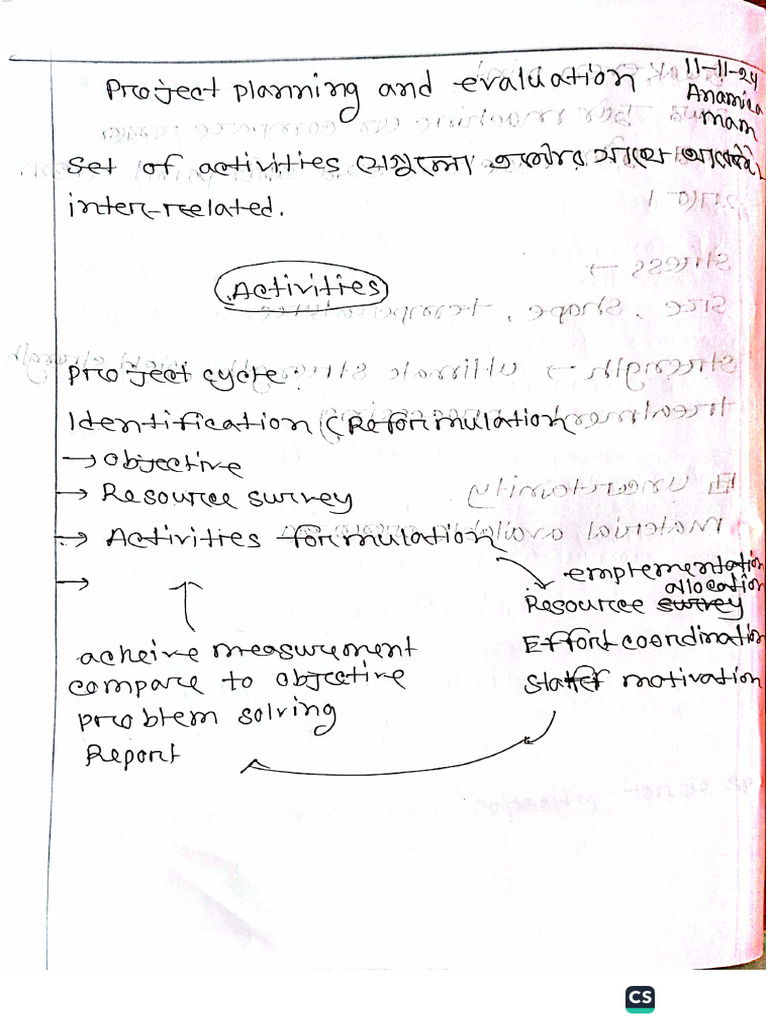 Project planning and evaluation
11-11-24
Anamica
mam
Set of activities যেগুলো একটার সাথে আরেকটা
inter-related.
Activities
Project cycle:
Identification (Reformulation
→ Objective
→ Resource survey
→ Activities formulation
→
emplementation
allocation
Resource survey
Effort coordination
Staff motivation
acheive measurement
compare to objective
problem solving
Report
CS